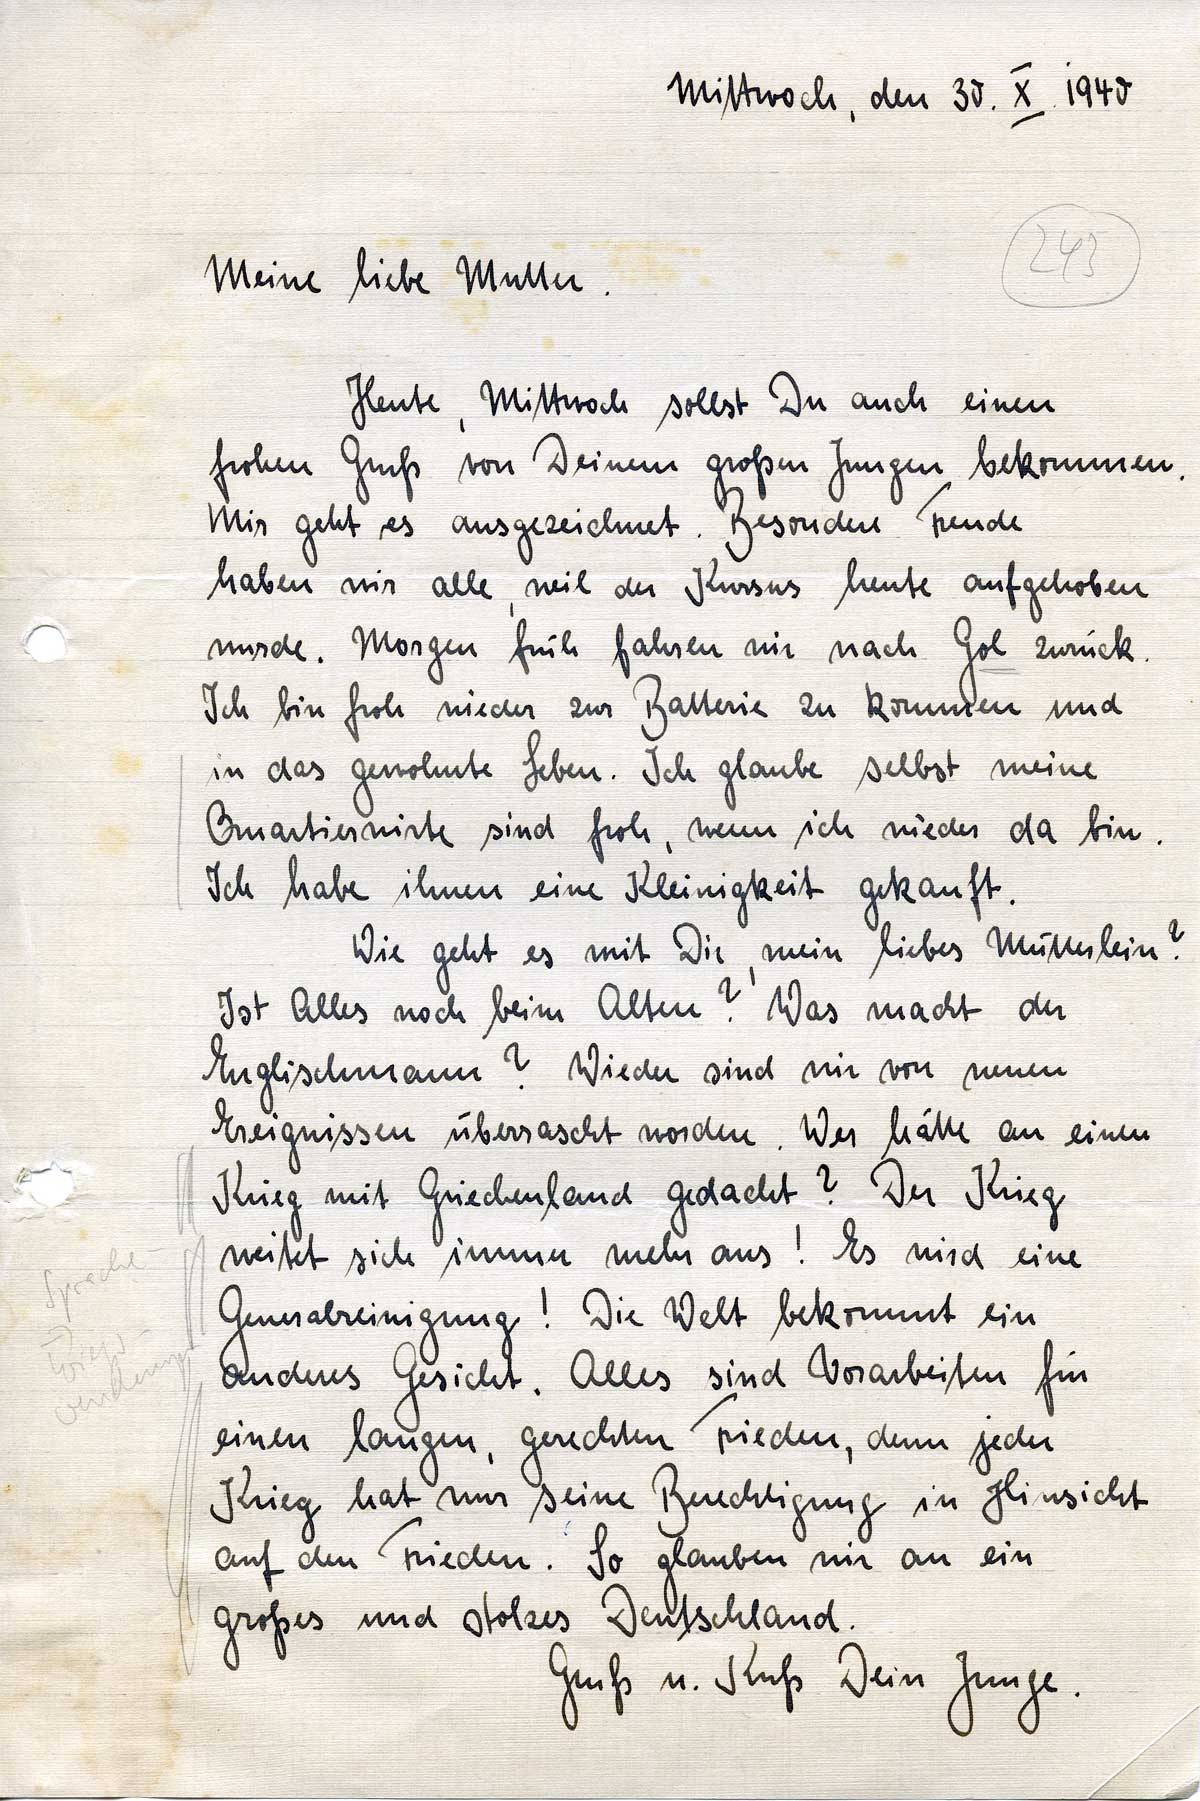 Mittwoch, den 30. X. 1940
245
Meine liebe Mutter.
Heute, Mittwoch sollst Du auch einen
frohen Gruß von Deinem großen Jungen bekommen.
Mir geht es ausgezeichnet. Besondere Freude
haben wir alle, weil der Kursus heute aufgehoben
wurde. Morgen früh fahren wir nach Gol zurück.
Ich bin froh wieder zur Batterie zu kommen und
in das gewohnte Leben. Ich glaube selbst meine
Quartierwirte sind froh, wenn ich wieder da bin.
Ich habe ihnen eine Kleinigkeit gekauft.
Wie geht es mit Dir, mein liebes Mütterlein?
Ist Alles noch beim Alten? Was macht der
Englischmann? Wieder sind wir von neuen
Ereignissen überrascht worden. Wer hätte an einen
Krieg mit Griechenland gedacht? Der Krieg
weitet sich immer mehr aus! Es wird eine
Generalreinigung! Die Welt bekommt ein
anderes Gesicht. Alles sind Vorarbeiten für
einen langen, gerechten Frieden, denn jeder
Krieg hat nur seine Berechtigung in Hinsicht
auf den Frieden. So glauben wir an ein
großes und stolzes Deutschland.
Gruß u. Kuß Dein Junge.
Sprache